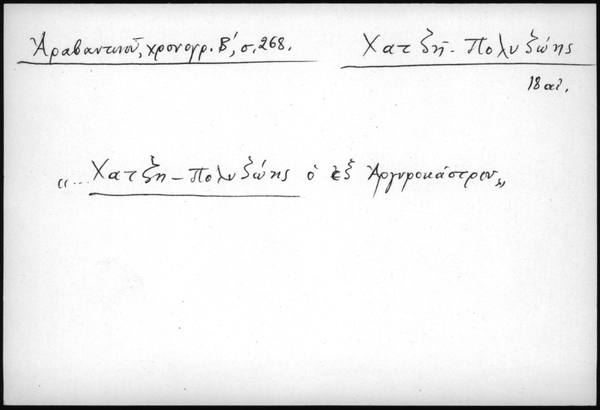 Ἀραβαντινοῦ, χρονογρ. Β΄, σ. 268.
Χατζῆ-Πολυζώης
18 αἰ.
«...Χατζῆ-Πολυζώης ὁ ἐξ Ἀργυροκάστρου»